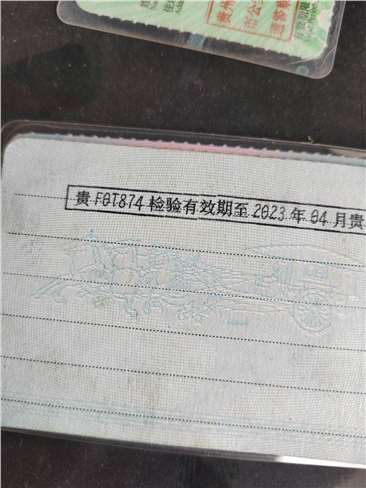 贵州
贵FOT874检验有效期至2023年04月贵